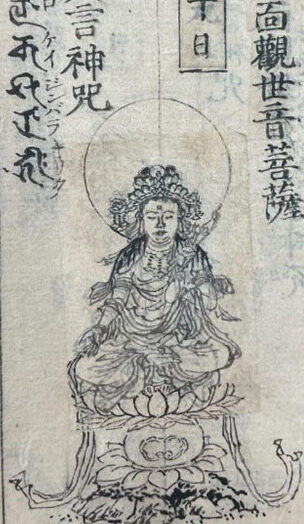 面觀世音菩薩
十日
言神咒
ケイジンバラキリク